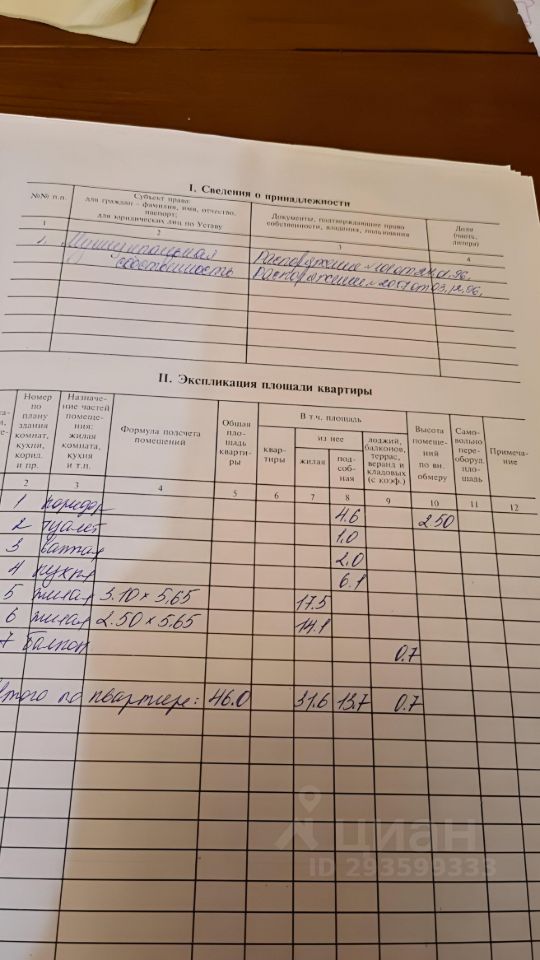 I. Сведения о принадлежности
№№ п.п.
Субъект права:
для граждан – фамилия, имя, отчество,
паспорт;
для юридических лиц по Уставу
Документы, подтверждающие право
собственности, владения, пользования
Доля
(часть,
литера)
1 2 3 4
1. Муниципальная Распоряжение
собственность Распоряжение от 03.12.96.
II. Экспликация площади квартиры
Номер
по
плану
здания
комнат,
кухни,
корид.
и пр.
Назначе-
ние частей
помеще-
ния:
жилая
комната,
кухня
и т.п.
Формула подсчета
помещений
Общая
пло-
щадь
кварти-
ры
В т.ч. площадь
квар-
тиры
из нее
жилая
под-
соб-
ная
лоджий,
балконов,
террас,
веранд и
кладовых
(с коэф.)
Высота
помеще-
ний
по вн.
обмеру
Само-
вольно
пере-
оборуд.
пло-
щадь
Примеча-
ние
2 3 4 5 6 7 8 9 10 11 12
1 коридор 4.6 2.50
2 туалет 1.0
3 ванная 2.0
4 кухня 6.1
5 жилая 3.10 × 5.65 17.5
6 жилая 2.50 × 5.65 14.1
7 балкон 0.7
Итого по квартире: 46.0 31.6 13.7 0.7
циан
ID 293599333